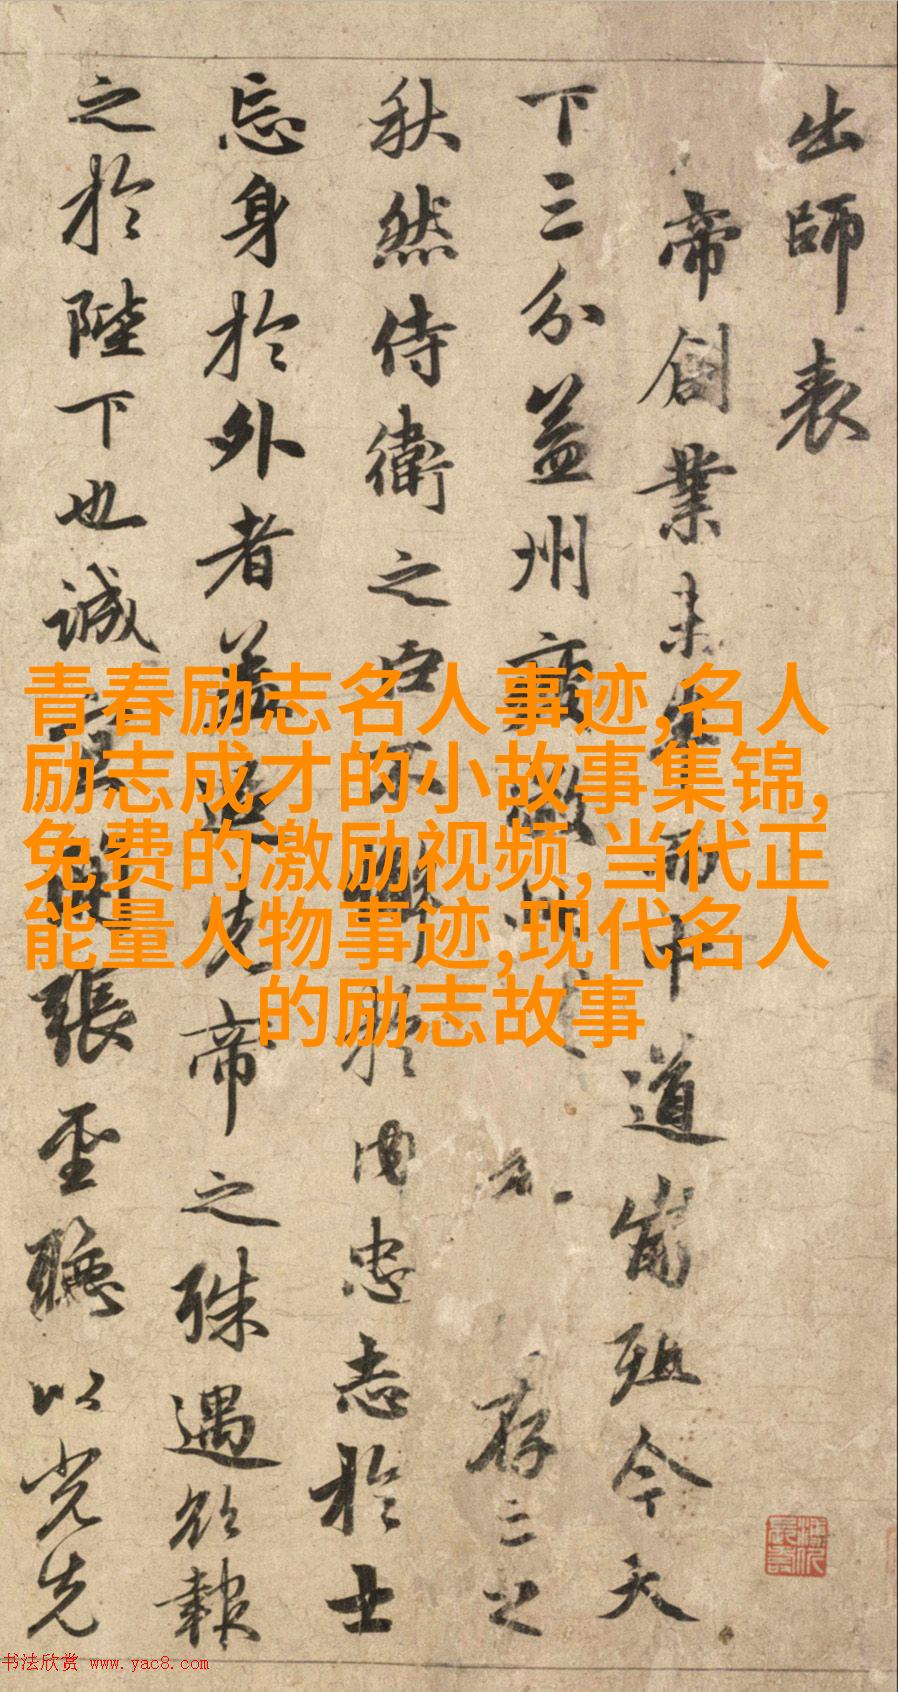 出師表
帝創業未半而中道崩殂今天
下三分益州疲敝存亡之
秋然侍衛之臣不懈於内忠志於士
忘身於外者蓋追先帝之殊遇欲報
之於陛下也誠宜開張聖聽以光先
青春励志名人事迹,名人
励志成才的小故事集锦,
免费的激励视频,当代正
能量人物事迹,现代名人
的励志故事
书法欣赏 www.yac8.com